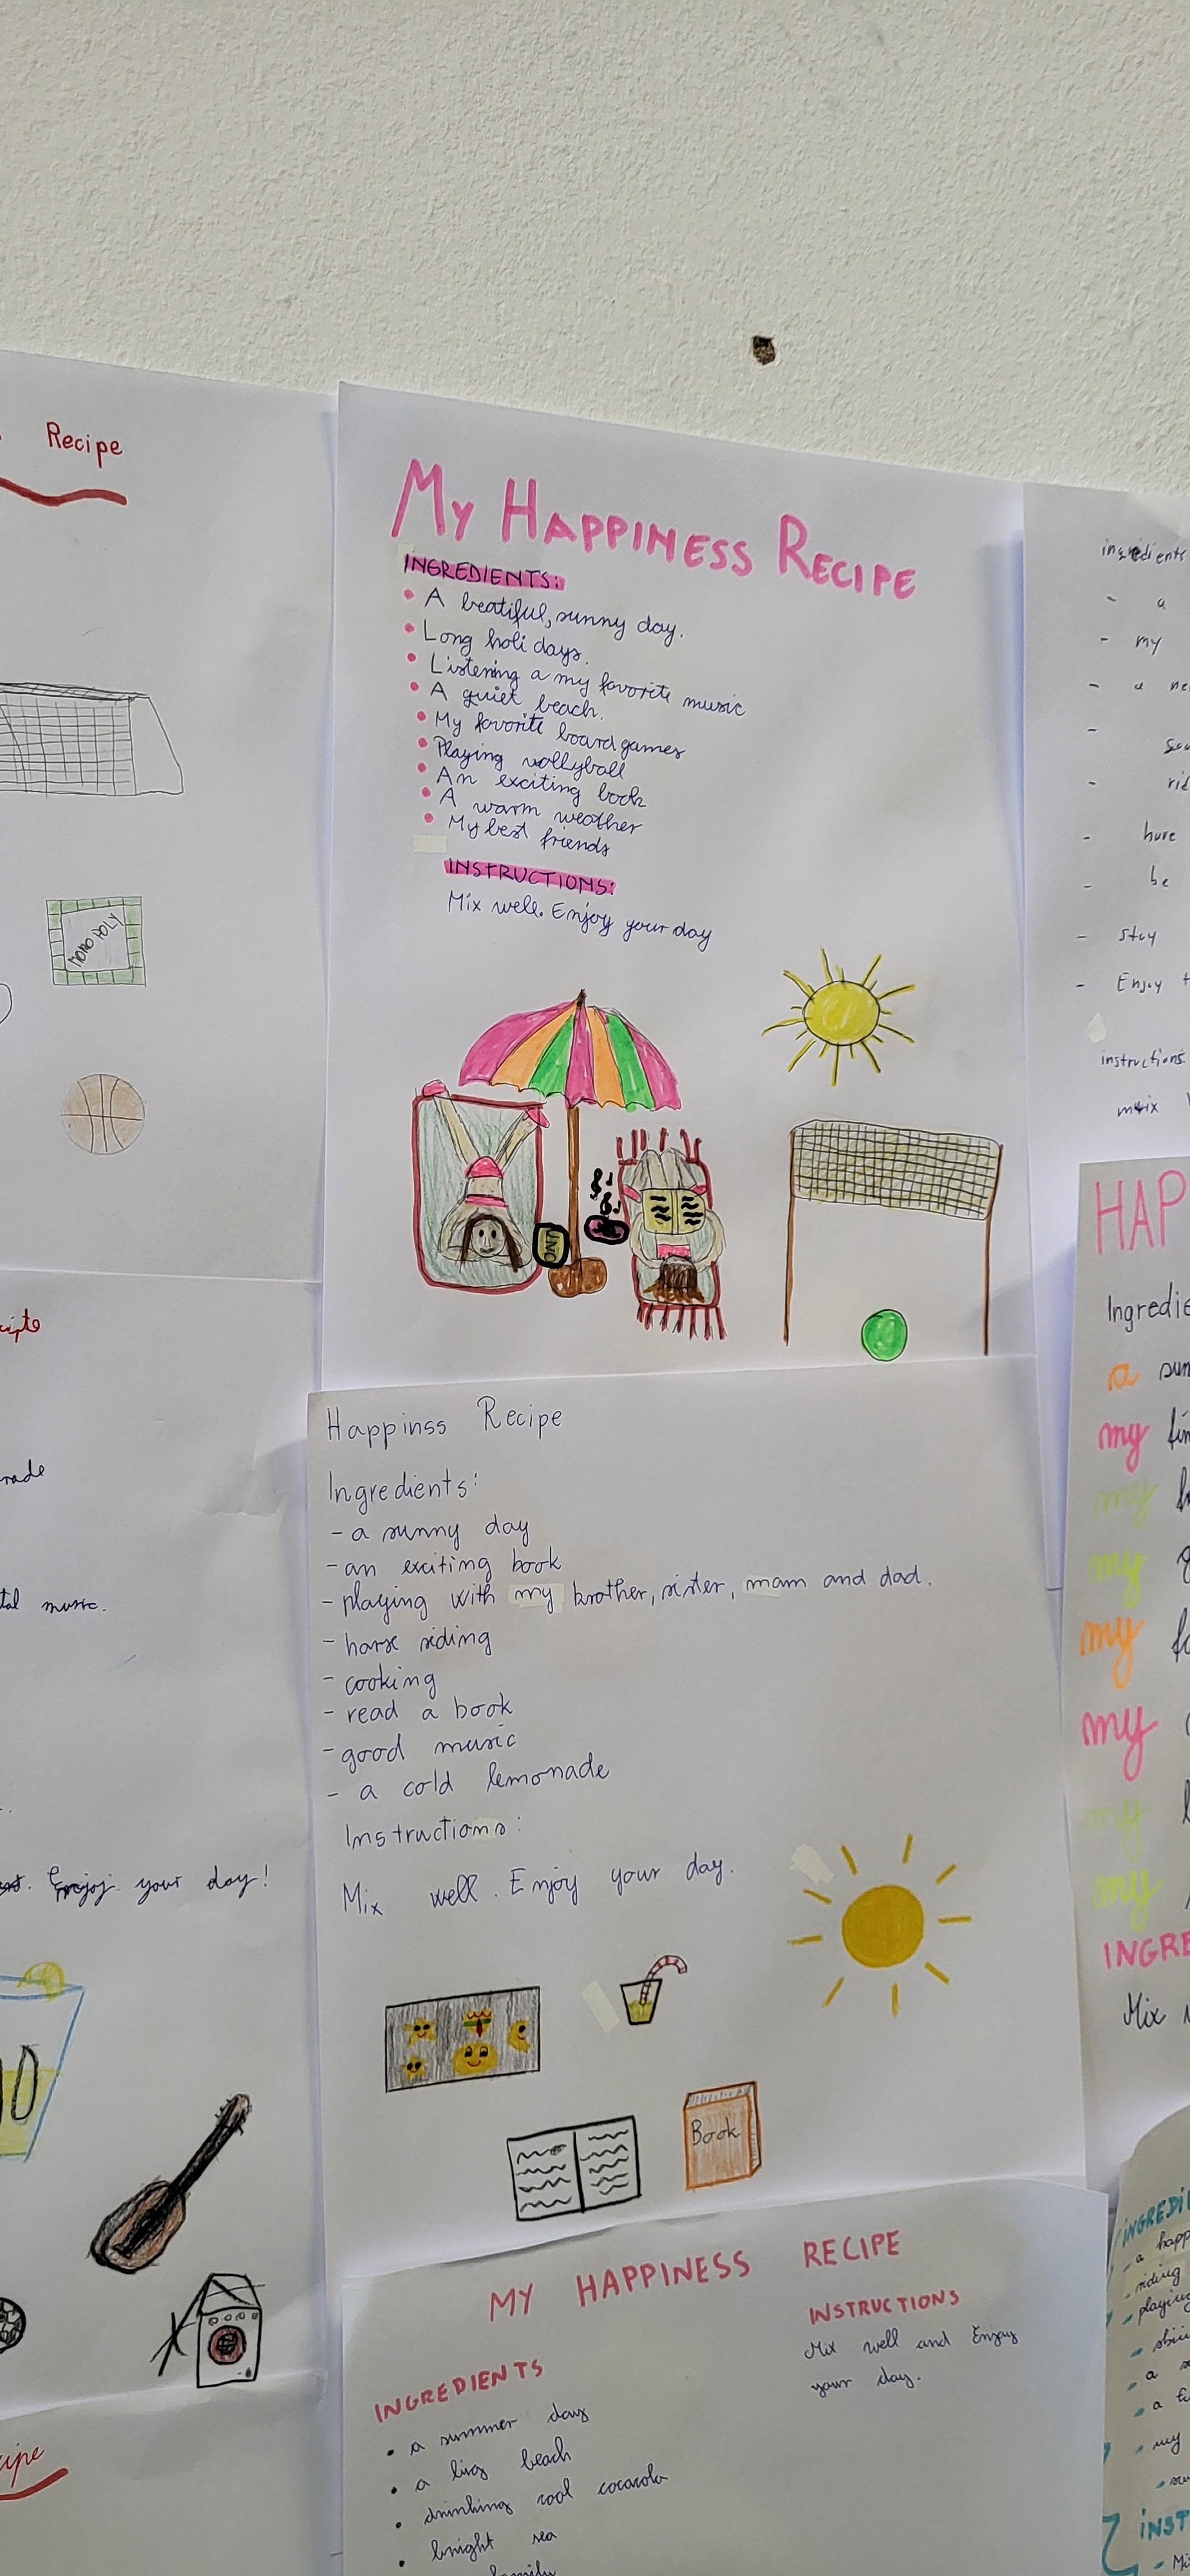 Recipe
MONOPOLY
My Happiness Recipe
INGREDIENTS:
• A beatiful, sunny day.
• Long holidays.
• Listening a my favorite music
• A quiet beach.
• My favorite board games
• Playing vollyball
• An exciting book
• A warm weather
• My best friends
INSTRUCTIONS:
Mix well. Enjoy your day
UNO
ingredients
- a
- my
- a
-
-
- have
- be
- stay
- Enjoy
instructions
music.
Enjoy your day!
Happinss Recipe
Ingredients:
- a sunny day
- an exciting book
- playing with my brother, sister, mam and dad.
- horse riding
- cooking
- read a book
- good music
- a cold lemonade
Instructions:
Mix well. Enjoy your day.
Book
HAP
Ingredie
a sun
my
my
my
my
my
my
my
INGRE
Mix
MY HAPPINESS RECIPE
INGREDIENTS
• a summer day
• a big beach
• drinking cool cocacola
• bright sea
family
INSTRUCTIONS
Mix well and Enjoy
your day.
INGREDI
- a happ
- riding
- playing
- a
- a
- my
INST
- Mi